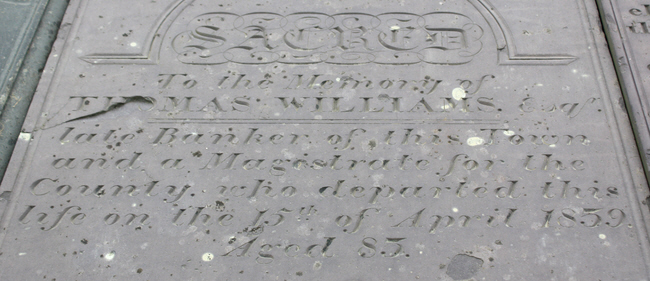 SACRED
To the Memory of
THOMAS WILLIAMS, Esqr.
late Banker of this Town
and a Magestrate for the
County, who departed this
life on the 15th of April 1839.
Aged 83.